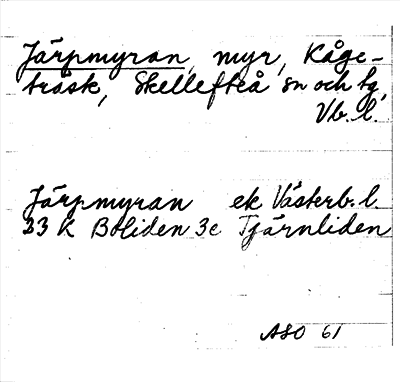 Järpmyran, myr, Kåge-
träsk, Skellefteå sn och tg,
Vb. l.
Järpmyran ek Västerb. l.
23 K Boliden 3e Tjärnliden
ASO 61